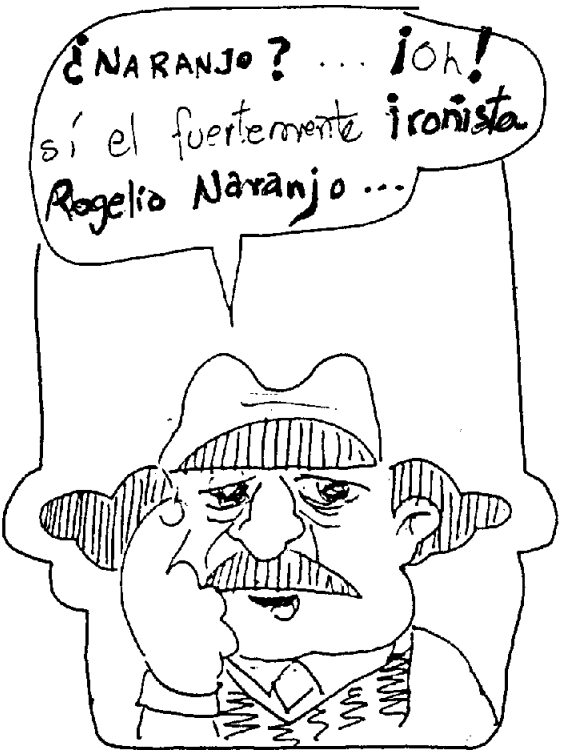 ¿NARANJO? ... ¡Oh!
sí el fuertemente ironista
Rogelio Naranjo ...